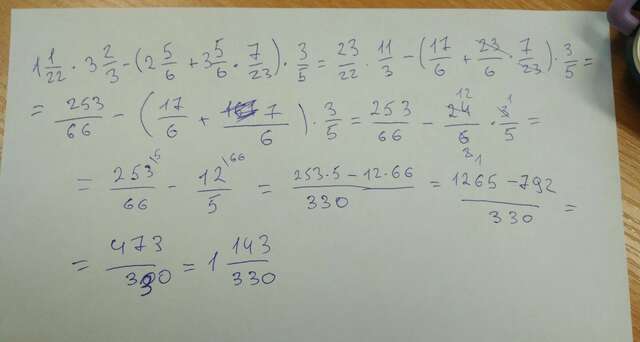 1 1/22 · 3 2/3 - (2 5/6 + 3 5/6 · 7/23) · 3/5 = 23/22 · 11/3 - (17/6 + 23/6 · 7/23) · 3/5 =
= 253/66 - (17/6 + 7/6) · 3/5 = 253/66 - 24/6 · 3/5 =
= 253/66 - 12/5 = (253·5 - 12·66)/330 = (1265 - 792)/330 =
= 473/330 = 1 143/330